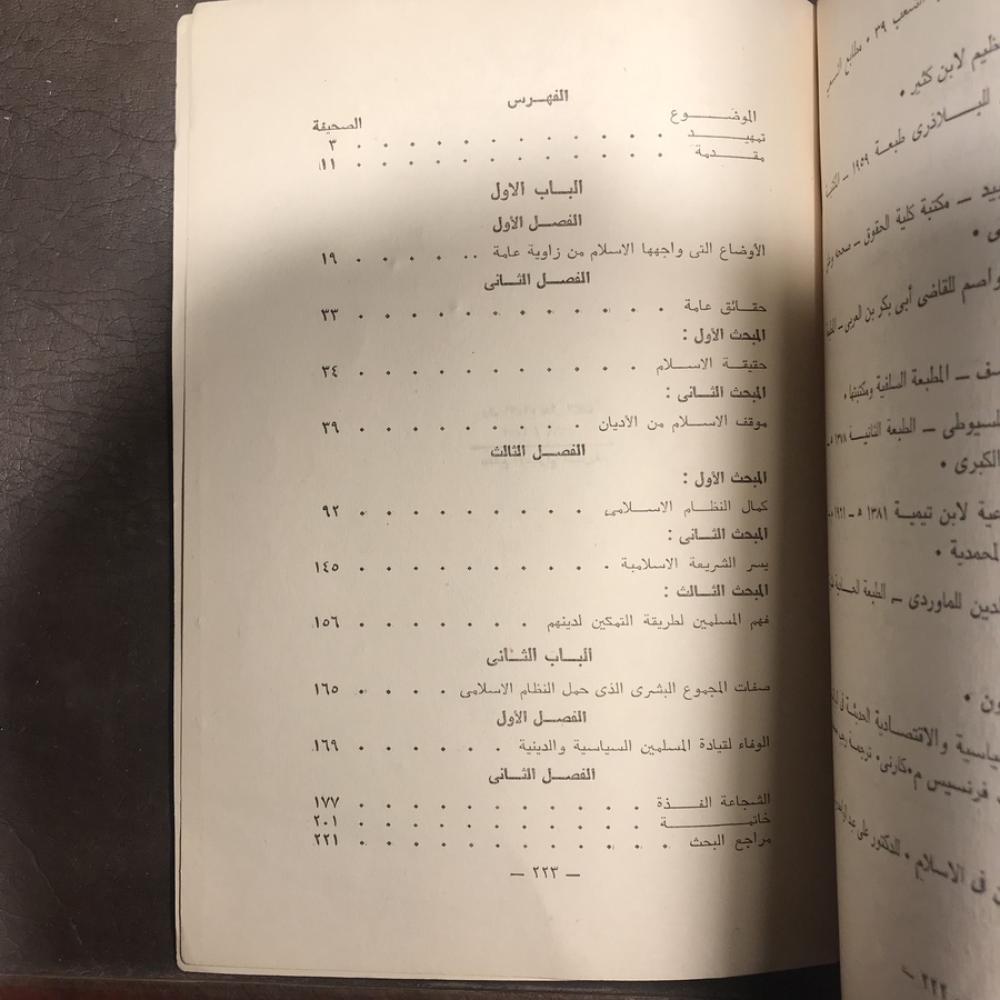 الفهرس
الموضوع الصحيفة
تمهيد ٣
مقدمة ١١
الباب الاول
الفصل الأول
الأوضاع التى واجهها الاسلام من زاوية عامة ١٩
الفصل الثانى
حقائق عامة ٣٣
المبحث الأول :
حقيقة الاسلام ٣٤
المبحث الثانى :
موقف الاسلام من الأديان ٣٩
الفصل الثالث
المبحث الأول :
كمال النظام الاسلامى ٩٢
المبحث الثانى :
يسر الشريعة الاسلامية ١٤٥
المبحث الثالث :
فهم المسلمين لطريقة التمكين لدينهم ١٥٦
الباب الثانى
صفات المجموع البشرى الذى حمل النظام الاسلامى ١٦٥
الفصل الأول
الوفاء لقيادة المسلمين السياسية والدينية ١٦٩
الفصل الثانى
الشجاعة الفذة ١٧٧
خاتمة ٢٠١
مراجع البحث ٢٢١
— ٢٢٣ —
الشعب ٣٩ • مطابع
لابن كثير •
للبلاذرى طبعة ١٩٥٩ —
— مكتبة كلية الحقوق —
للقاضى أبى بكر بن العربى —
— المطبعة السلفية ومكتبتها •
— الطبعة الثانية ١٣٧٨ ه —
الكبرى •
لابن تيمية ١٣٨١ ه — ١٩٦١
المحمدية •
للماوردى — الطبعة
والاقتصادية الحديثة فى
فرنسيس م•كارنى• ترجمة
فى الاسلام • للدكتور على عبد
— ٢٢٢